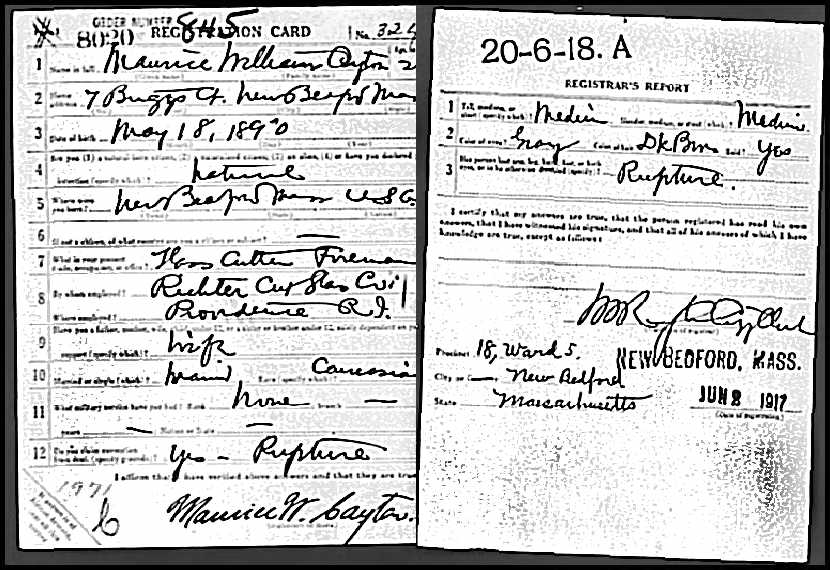 ORDER NUMBER 845
8020 REGISTRATION CARD No. 326
1 Name in full Maurice William Cayton
2 Home address 7 Briggs Ct. New Bedford Mass
3 Date of birth May 18, 1890
4 Are you (1) a natural-born citizen, (2) a naturalized citizen, (3) an alien, (4) or have you declared
intention (specify which)? natural
5 Where were you born? New Bedford Mass U S
6 If not a citizen, of what country are you a citizen or subject? —
7 What is your present trade, occupation, or office? Glass Cutter Foreman
8 By whom employed? Richter Cut Glass Co
Where employed? Providence R.I.
9 Have you a father, mother, wife, child under 12, or a sister or brother under 12, solely dependent on
support (specify which)? wife
10 Married or single (which)? Married Race (specify which)? Caucasian
11 What military service have you had? Rank None branch —
years — Nation or State —
12 Do you claim exemption from draft (specify grounds)? Yes - Rupture
I affirm that I have verified above answers and that they are true
Maurice W. Cayton.
20-6-18. A
REGISTRAR'S REPORT
1 Tall, medium, or short (specify which)? Medium Slender, medium, or stout (which)? Medium
2 Color of eyes? Gray Color of hair? Dk Brn Bald? Yes
3 Has person lost arm, leg, hand, foot, or both eyes, or is he otherwise disabled (specify)? Rupture.
I certify that my answers are true, that the person registered has read his own
answers, that I have witnessed his signature, and that all of his answers of which I have
knowledge are true, except as follows:
Precinct 18, Ward 5. NEW BEDFORD, MASS.
City or New Bedford
State Massachusetts JUN 2 1917
(Date of registration)